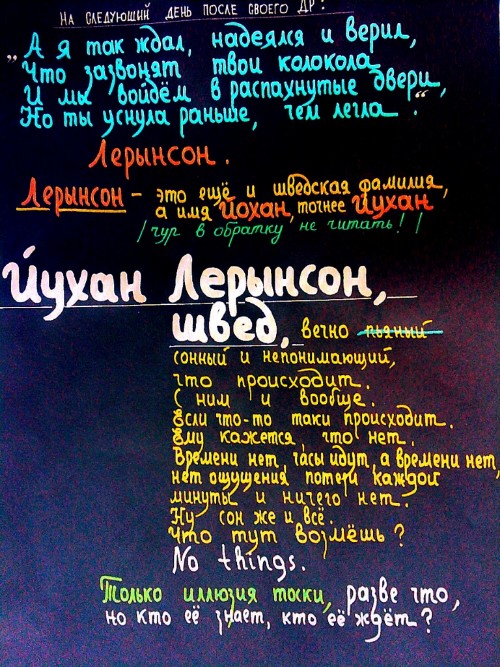 НА СЛЕДУЮЩИЙ ДЕНЬ ПОСЛЕ СВОЕГО ДР:
„А я так ждал, надеялся и верил,
Что зазвонят твои колокола
И мы войдём в распахнутые двери,
Но ты уснула раньше, чем легла."
Лерынсон.
Лерынсон – это ещё и шведская фамилия,
а имя Йохан, точнее Йухан
/чур в обратку не читать!/
Йухан Лерынсон,
швед, вечно пьяный
сонный и непонимающий,
что происходит.
С ним и вообще.
Если что-то таки происходит.
Ему кажется, что нет.
Времени нет, часы идут, а времени нет,
нет ощущения потери каждой
минуты и ничего нет.
Ну сон же и всё.
Что тут возмёшь?
No things.
Только иллюзия тоски, разве что,
но кто её знает, кто её ждёт?